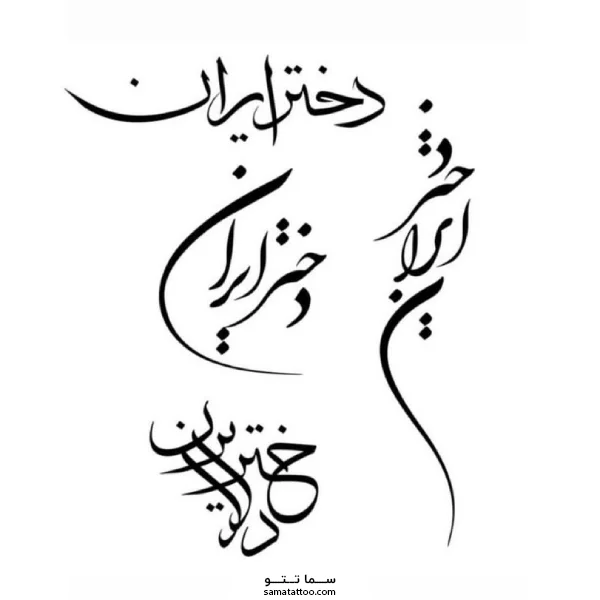 دختر ایران
دختر ایران
دختر ایران
دختر ایران
سما تتو
samatattoo.com